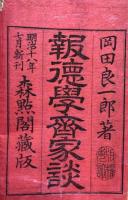 岡田良一郎著
報德學齊家談
明治十八年
七月新刊
森點閣藏版